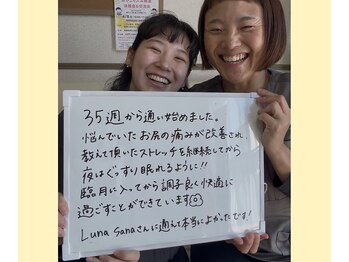 35週から通い始めました。
悩んでいたお尻の痛みが改善され
教えて頂いたストレッチを継続してから
夜はぐっすり眠れるように!!
臨月に入ってから調子良く快適に
過ごすことができています
Luna sanaさんに通えて本当によかったです!